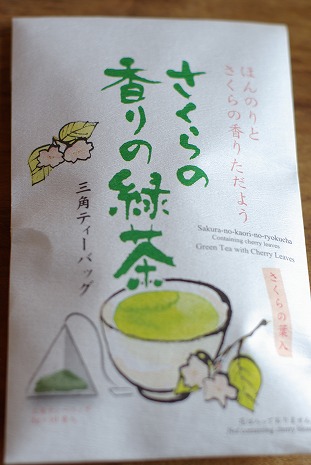 ほんのりと
さくらの香りただよう
さくらの
香りの緑茶
三角ティーバッグ
Sakura-no-kaori-no-ryokucha
Containing cherry leaves
Green Tea with Cherry Leaves
さくらの葉入